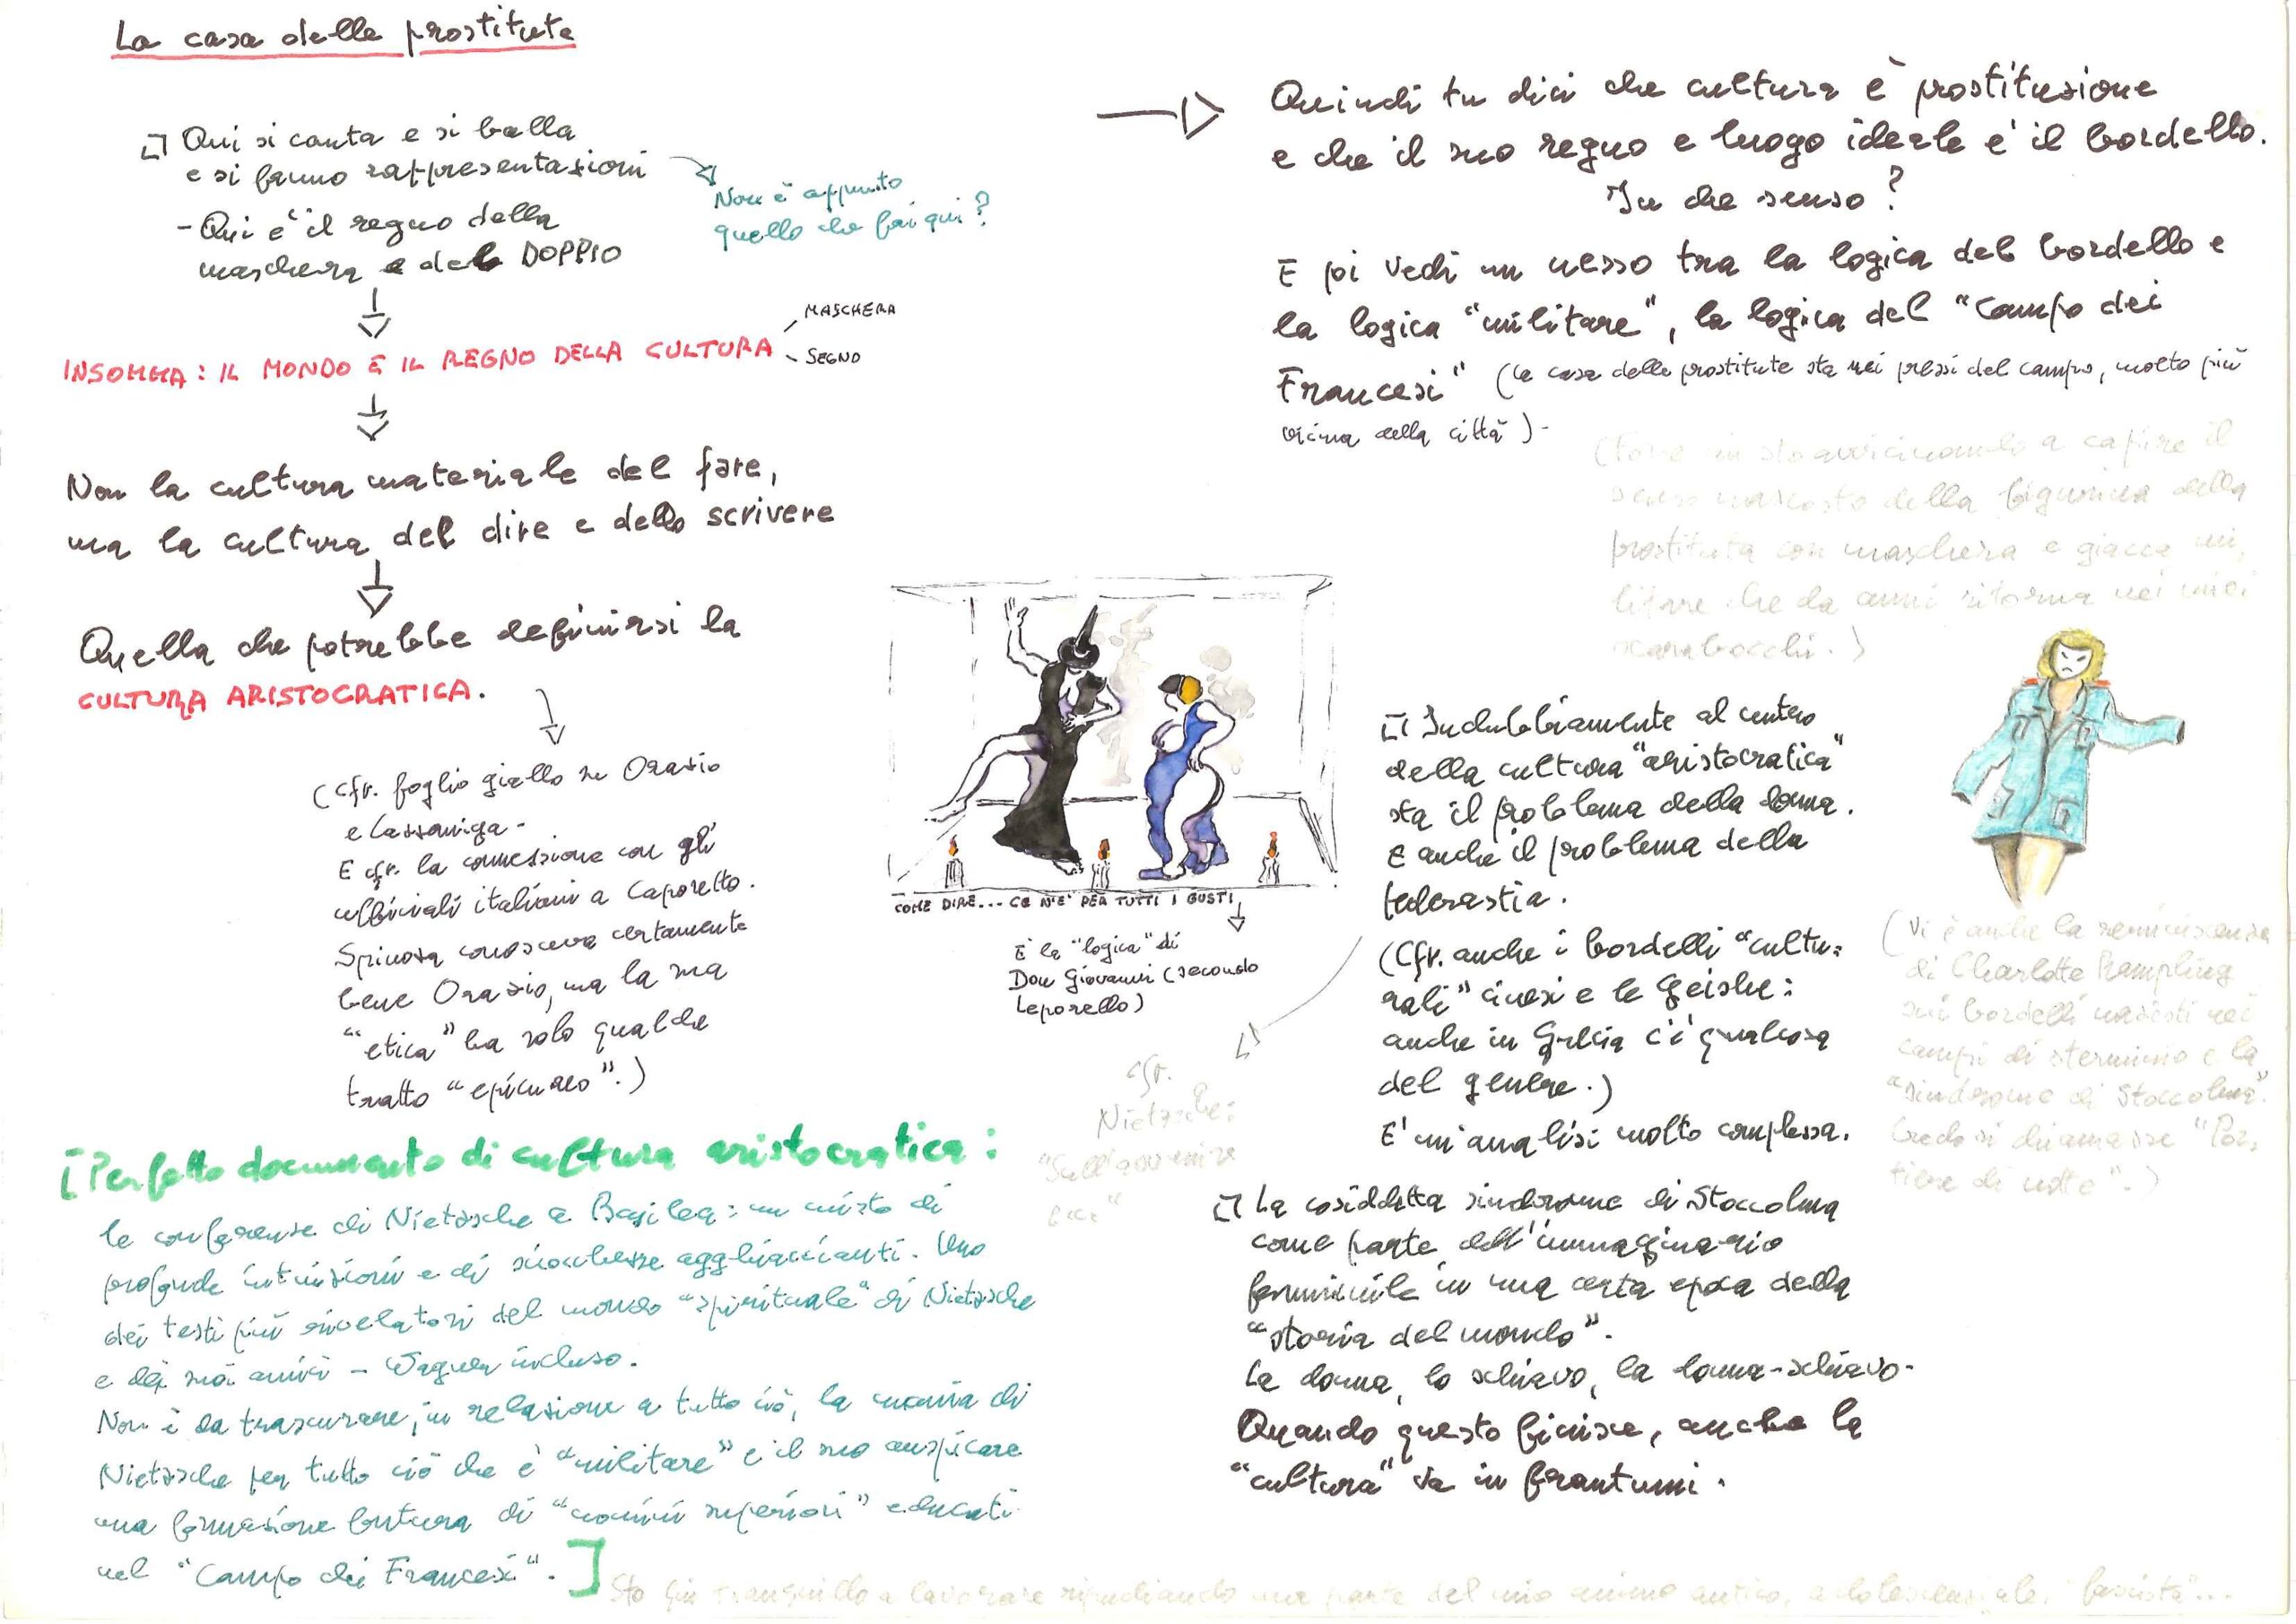 La casa delle prostitute
Qui si canta e si balla
e si fanno rappresentazioni
Non è appunto
quello che fai qui?
- Qui è il regno della
maschera e del DOPPIO
MASCHERA
INSOMMA: IL MONDO È IL REGNO DELLA CULTURA
SEGNO
Non la cultura materiale del fare,
ma la cultura del dire e dello scrivere
Quella che potrebbe definirsi la
CULTURA ARISTOCRATICA.
(Cfr. foglio giallo su Orazio
e Cassaniga.
E cfr. la connessione con gli
ufficiali italiani a Caporetto.
Spinosa conosceva certamente
bene Orazio, ma la sua
"etica" ha solo qualche
tratto "epicureo".)
[Perfetto documento di cultura aristocratica:
le conferenze di Nietzsche a Basilea: un misto di
profonde intuizioni e di sciocchezze agghiaccianti. Uno
dei testi più rivelatori del mondo "spirituale" di Nietzsche
e dei suoi amici - Wagner incluso.
Non è da trascurare, in relazione a tutto ciò, la mania di
Nietzsche per tutto ciò che è "militare" e il suo auspicare
una formazione futura di "uomini superiori" educati
nel "Campo dei Francesi".]
COME DIRE... CE N'E' PER TUTTI I GUSTI
È la "logica" di
Don Giovanni (secondo
Leporello)
Quindi tu dici che cultura è prostituzione
e che il suo regno e luogo ideale è il bordello.
In che senso?
E poi vedi un nesso tra la logica del bordello e
la logica "militare", la logica del "Campo dei
Francesi" (la casa delle prostitute sta nei pressi del campo, molto più
vicina della città)-
(Forse mi sto avvicinando a capire il
senso nascosto della figurina della
prostituta con maschera e giacca mi-
litare che da anni ritorna nei miei
scarabocchi.)
Indubbiamente al centro
della cultura "aristocratica"
sta il problema della donna.
E anche il problema della
pederastia.
(Cfr. anche i bordelli "cultu=
rali" cinesi e le Geishe:
anche in Grecia c'è qualcosa
del genere.)
E' un'analisi molto complessa.
cfr.
Nietzsche:
"Sull'avvenire
ecc"
(Vi è anche la reminiscenza
di Charlotte Rampling
sui bordelli nazisti nei
campi di sterminio e la
"sindrome di Stoccolma".
Credo si chiamasse "Por-
tiere di notte".)
La cosiddetta sindrome di Stoccolma
come parte dell'immaginario
femminile in una certa epoca della
"storia del mondo".
La donna, lo schiavo, la donna-schiavo-
Quando questo finisce, anche la
"cultura" va in frantumi.
Sto qui tranquillo a lavorare ripudiando una parte del mio animo antico, adolescenziale, "fascista"...